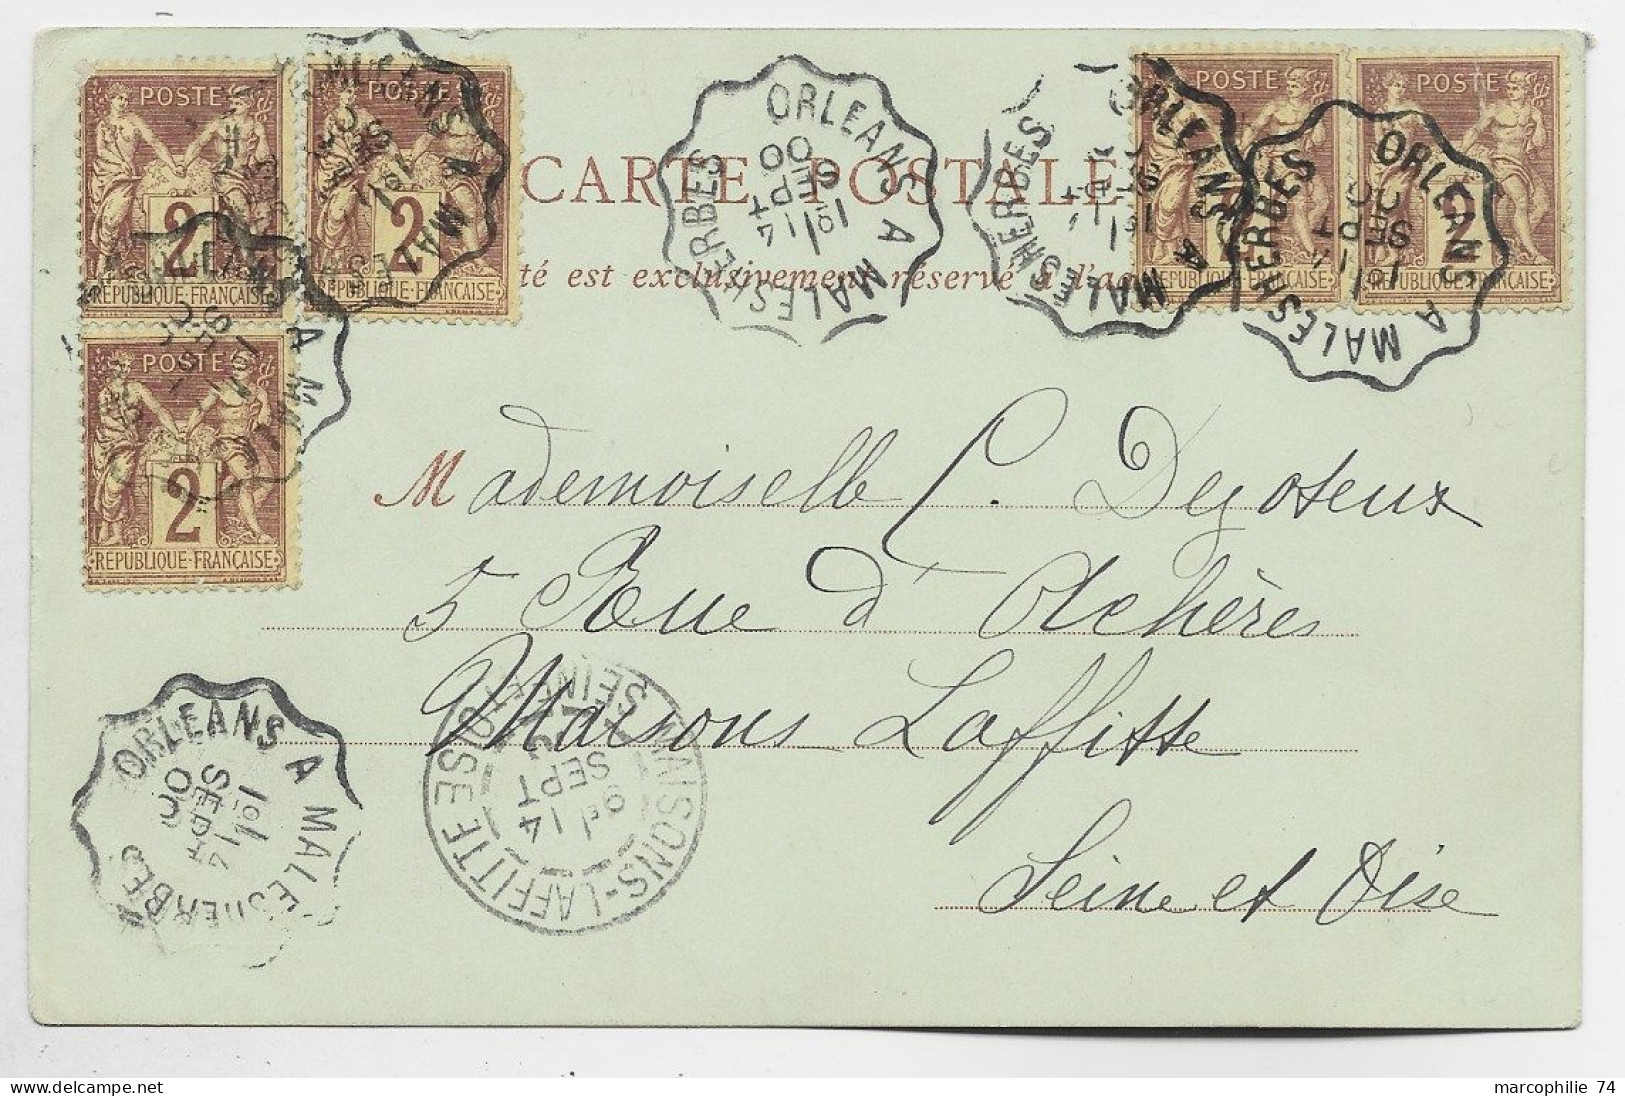 POSTE
2
RÉPUBLIQUE FRANÇAISE
POSTE
2
RÉPUBLIQUE FRANÇAISE
POSTE
2
RÉPUBLIQUE FRANÇAISE
POSTE
2
RÉPUBLIQUE FRANÇAISE
POSTE
2
RÉPUBLIQUE FRANÇAISE
CARTE POSTALE
té est exclusivement réservé à l'a
ORLEANS A MALESHERBES
1º/14
SEPT
00
ORLEANS A MALESHERBES
ORLEANS A MALESHERBES
1º/14
SEPT
00
Mademoiselle C. Dezoteux
5 Rue d'Achères
Maisons Laffitte
Seine et Oise
ORLEANS A MALESHERBES
1º/14
SEPT
00
MAISONS-LAFFITTE
SEINE ET OISE
14
SEPT
marcophilie 74